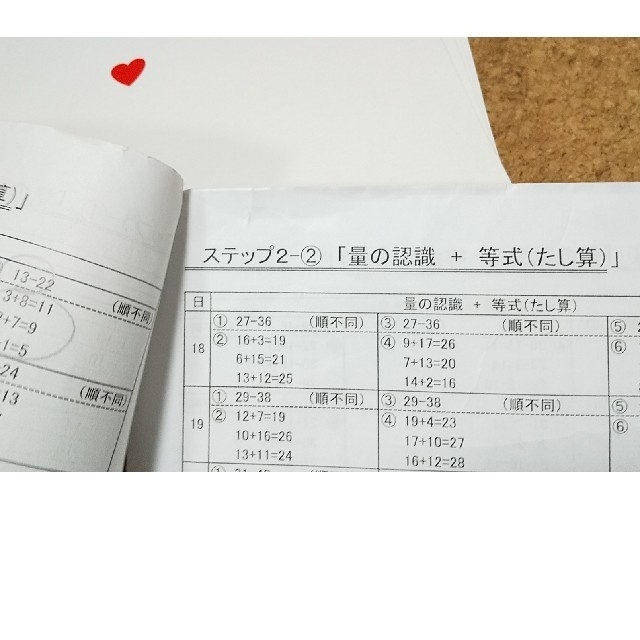 算)」
13-22
3+8=11 (順不同)
+7=9
+1=5
24
13 (順不同)
ステップ2-② 「量の認識 + 等式(たし算)」
日 量の認識 + 等式(たし算)
18
① 27-36 (順不同) ③ 27-36 (順不同) ⑤
② 16+3=19 ④ 9+17=26 ⑥
6+15=21 7+13=20
13+12=25 14+2=16
19
① 29-38 (順不同) ③ 29-38 (順不同) ⑤
② 12+7=19 ④ 19+4=23 ⑥
10+16=26 17+10=27
13+11=24 16+12=28